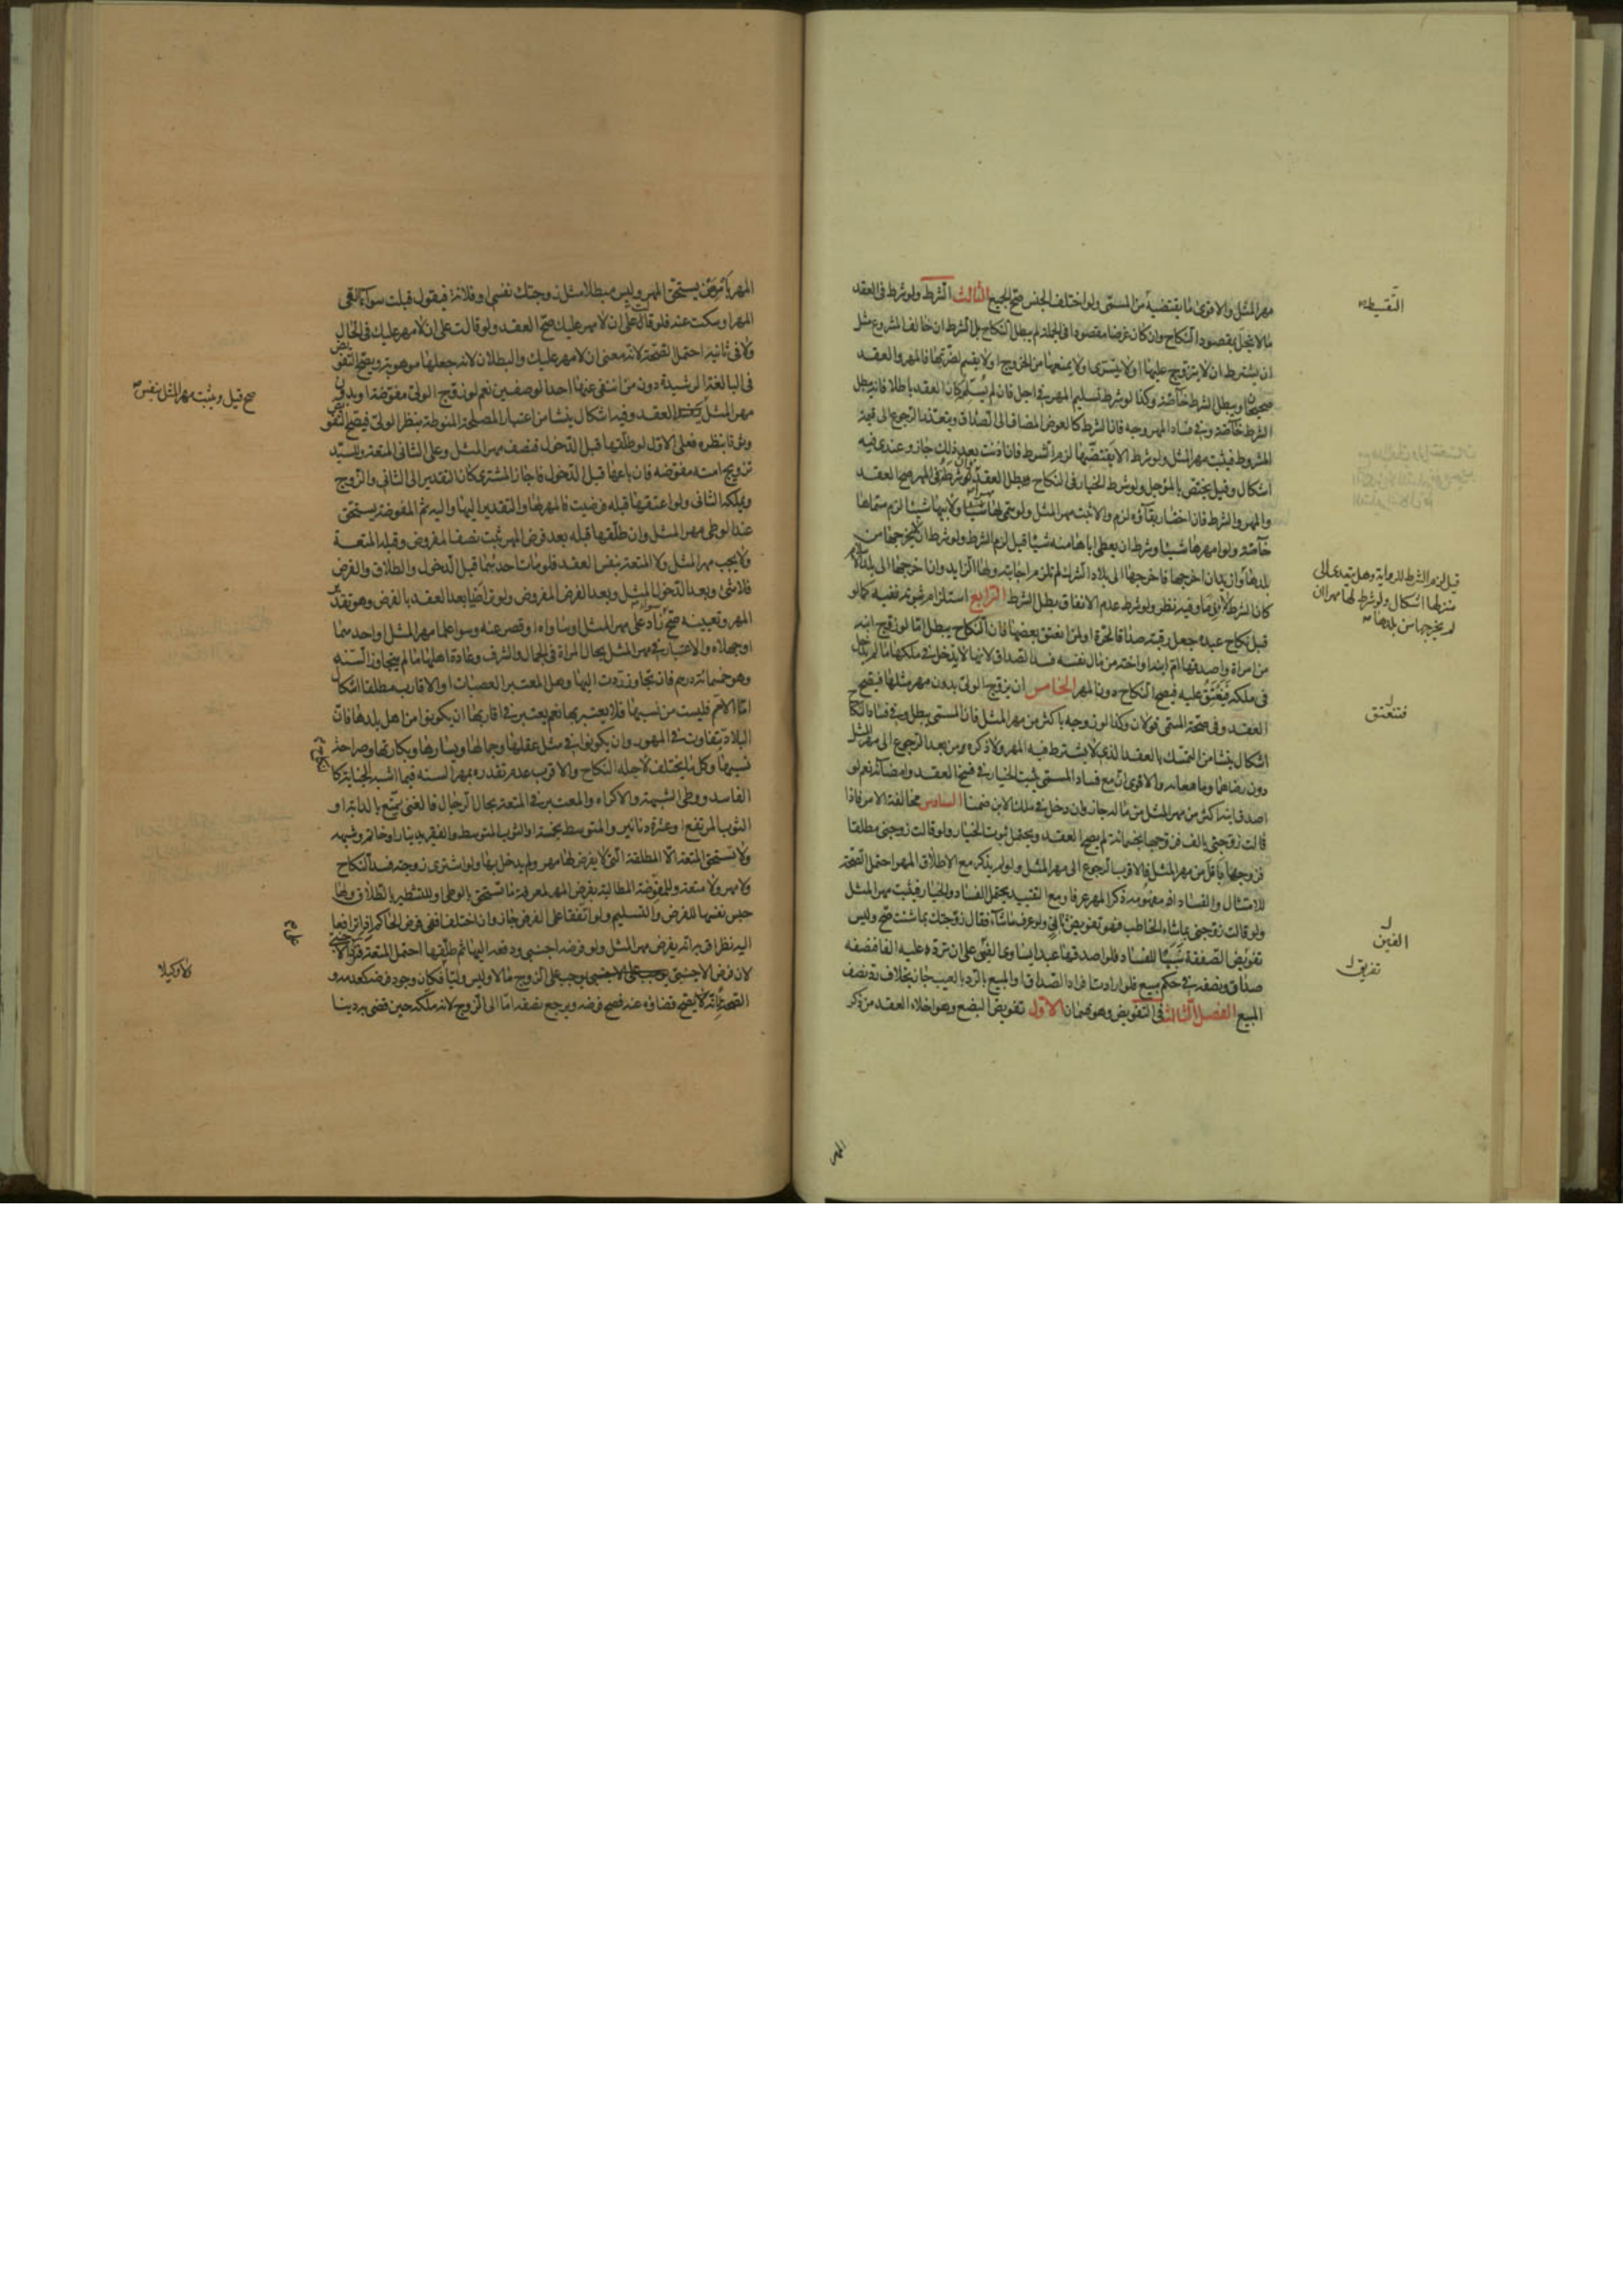 مهر المثل والاقوى ما يقتضيه من المسمى ولو اختلف الجنس صح الجميع الثالث الشرط ولو شرط فى العقد
ما لا يخل بمقصود النكاح وان كان غرضا مقصودا فى الجملة لم يبطل النكاح بل الشرط ان خالف المشروع مثل
ان يشترط ان لا يتزوج عليها او لا يتسرى ولا يمنعها من الخروج او لا يقسم لضرتها فالمهر والعقد
صحيحان ويبطل الشرط خاصة وكذا لو شرط تسليم المهر فى اجل فان لم يسلم كان العقد باطلا فانه يبطل
الشرط خاصة وفى فساد المهر وجه فان الشرط كالعوض المضاف الى الصداق ويتعذر الرجوع الى قيمة
المشروط فيثبت مهر المثل ولو شرط الا يفتضها لزم الشرط فان اذنت بعد ذلك جاز وعندى فيه
اشكال وقيل يختص بالمؤجل ولو شرط الخيار فى النكاح بطل العقد ولو شرطه فى المهر صح العقد
والمهر والشرط فان اختار بقاؤه لزم والا ثبت مهر المثل ولو سمى لها شيئا ولابيها شيئا لزم مسماها
خاصة ولو امهرها شيئا وشرط ان يعطى اباها منه شيئا قيل لزم الشرط ولو شرط ان لا يخرجها من
بلدها وان يدان اخرجها فاخرجها الى بلاد الشرك لم تلزم اجابته ولها الزايد وان اخرجها الى بلد الاسلام
كان الشرط لازما وفيه نظر ولو شرط عدم الانفاق بطل الشرط الرابع استلزام ثبوته نفيه كما لو
قبل نكاح عبده جعل رقبته صداقا لحرة او لمن انعتق بعضها فان النكاح يبطل اما لو زوج ابنه
من امراة واصدقها ام ابنه او اخته من مال نفسه فسد الصداق لانها لا يدخل فى ملكها ما لم يدخل
فى ملكه فيعتق عليه فيصح النكاح دون المهر الخامس ان يزوج الولى بدون مهر مثلها فيصح
العقد وفى صحة المسمى قولان وكذا لو زوجه باكثر من مهر المثل فان المسمى يبطل وفى فساد النكاح
اشكال ينشا من التمسك بالعقد الذى لا يشترط فيه المهر ولا ذكره ومن بعد الرجوع الى مهر المثل
دون رضاهما وما معا به والاقوى ان مع فساد المسمى يثبت الخيار فى فسخ العقد وامضائه نعم لو
اصدق ابنه اكثر من مهر المثل من ماله جاز وان دخل فى ملك الابن ضمنا السادس مخالفة الامر فاذا
قالت زوجنى بالف فزوجها بخمسمائة لم يصح العقد ويحتمل ثبوت الخيار ولو قالت زوجنى مطلقا
فزوجها باقل من مهر المثل فالاقرب الرجوع الى مهر المثل ولو لم يذكره مع الاطلاق المهر احتمل الصحة
للامتثال والفساد اذ مفهومه ذكر المهر عرفا ومع التقييد يحتمل الفساد والخيار فيثبت مهر المثل
ولو قالت زوجنى بما شاء الخاطب فهو تفويض فان عرف ما شآء فقال زوجتك بما شئت صح وليس
تفويض الصفقة سببا للفساد فلو اصدقها عبدا يساوى الفين على ان ترد عليه الفا فنصفه
صداق ونصفه فى حكم مبيع فلو ارادت افراد الصداق او المبيع بالرد بالعيب جاز بخلاف رد نصف
المبيع الفصل الثالث فى التفويض وهو قسمان الاول تفويض البضع وهو اخلاء العقد من ذكر
المهر
التقسيط
قيل لزم الشرط للرواية وهل يتعدى الى
منزلها اشكال ولو شرط لها مهرا ان
لم يخرجها من بلدها
فتنعتق
الفين
تفريق
المهر بامر من يستحق المهر وليس مبطلا مثل زوجتك نفسى او فلانة فيقول قبلت سوآء نفى
المهر او سكت عنه فلو قال على ان لا مهر عليك صح العقد ولو قالت على ان لا مهر عليك فى الحال
ولا فى ثانيه احتمل الصحة لانه معنى ان لا مهر عليك والبطلان لانه جعلها موهوبة ويصح التفويض
فى البالغة الرشيدة دون من انتفى عنها احد الوصفين نعم لو زوج الولى مفوضة او بدون
مهر المثل العقد وفيه اشكال ينشا من اعتبار المصلحة المنوطة بنظر الولى فيصح التفويض
وثوقا بنظره فعلى الاول لو طلقها قبل الدخول فنصف مهر المثل وعلى الثانى المتعة وللسيد
تزويج امته مفوضة فان باعها قبل الدخول فاجاز المشترى كان التقدير الى الثانى والزوج
ويملكه الثانى ولو اعتقها قبله فرضيت فالمهر لها والتقدير اليها واليه ثم المفوضة يستحق
عند الوطى مهر المثل وان طلقها قبله بعد فرض المهر ثبت نصف المفروض وقبله المتعة
ولا يجب مهر المثل ولا المتعة بنفس العقد فلو مات احدهما قبل الدخول والطلاق والفرض
فلا شئ وبعد الدخول المثل وبعد الفرض المفروض ولو تراضيا بعد العقد بالفرض وهو تقدير
المهر وتعيينه صح سوآء زاد على مهر المثل او ساواه او قصر عنه وسوا علما مهر المثل او احدهما
او جهلاه والاعتبار فى مهر المثل بحال المراة فى الجمال والشرف وعادة اهلها ما لم يتجاوز السنة
وهو خمسمائة درهم فان تجاوز ردت اليها وهل المعتبر العصبات او الاقارب مطلقا اشكال
اما الام فليست من نسبها فلا يعتبر بها نعم يعتبر فى اقاربها ان يكونوا من اهل بلدها فان
البلاد يتفاوت فى المهور وان يكونوا فى مثل عقلها وجمالها ويسارها وبكارتها وصراحة
نسبها وكل ما يختلف لاجله النكاح والاقرب عدم تقدره بمهر السنة فيما اشبه الجناية كالنكاح
الفاسد ووطى الشبهة والاكراه والمعتبر فى المتعة بحال الرجال فالغنى يمتع بالدابة او
الثوب المرتفع او عشرة دنانير والمتوسط بخمسة او الثوب المتوسط والفقير بدينار او خاتم وشبهه
ولا تستحق المتعة الا المطلقة التى لا يفرض لها مهر ولم يدخل بها ولو اشترى زوجته فسد النكاح
ولا مهر ولا متعة وللمفوضة المطالبة بفرض المهر لمعرفة ما تستحق بالوطى او بالتشطير بالطلاق ولها
حبس نفسها للفرض والتسليم ولو اتفقا على الفرض جاز وان اختلفا ففى فرض الحاكم اذا ترافعا
اليه نظر اقربه انه يفرض مهر المثل ولو فرضه اجنبى ودفعه اليها ثم طلقها احتمل المتعة
لان فرض الاجنبى يوجب على الزوج مالا وليس وليا فكان وجود فرضه كعدمه و
الصحة لانه يصح قضاؤه عنه فصح فرضه ويرجع نصفه اما الى الزوج لانه ملكه حين قضى به دينا
صح قيل ويثبت مهر المثل بنفس
ولا وكيلا